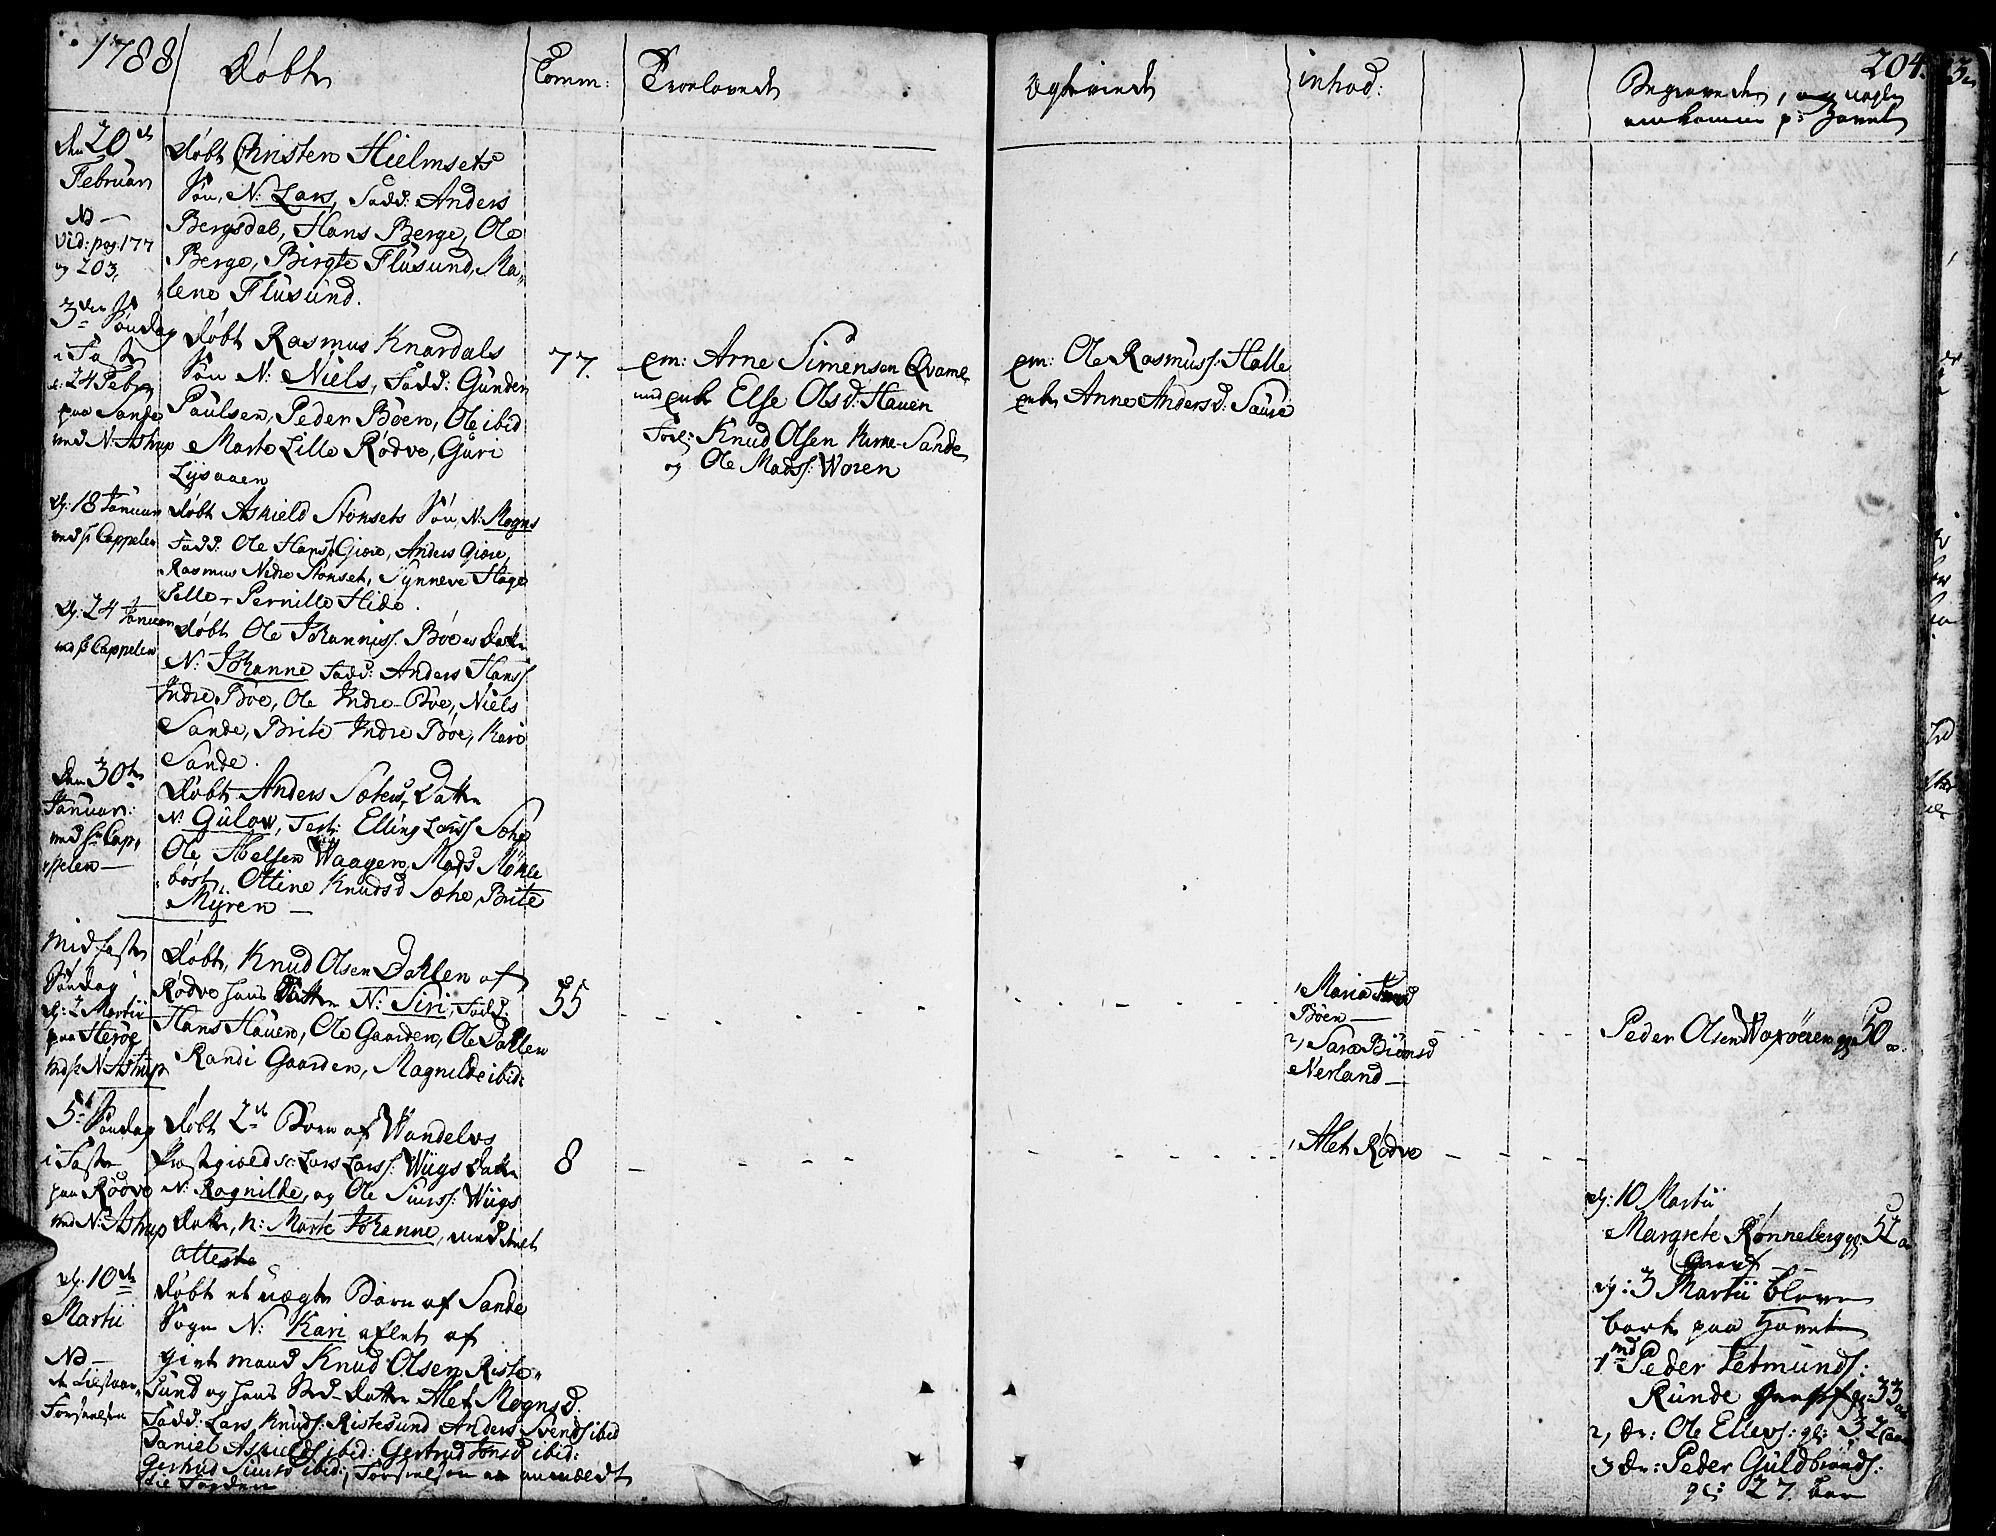 1788
Døbte
Comm:
Troelovede
Egteviede
introd:
204.
Begravede, og uegte
omkomne p: Havet
den 20de
Februarii
NB
Vid: pag. 177
og 203.
døbt Christen Hielmsets
Søn, N: Lars, Fadd: Anders
Bergsdal, Hans Berge, Ole
Berge, Birgte Flusund, Ma,,
,,lene Flusund.
3die Søndag
i Faste
d: 24 Febr
paa Sande
ved N: Astrup
døbt Rasmus Knardals
Søn N: Niels, Fadd: Gunder
Paulsen, Peder Bøen, Ole ibid
Marte Lille Rødve, Guri
Lysaaen
77.
em: Arne Simensen Qvame
med enke Else Olsd: Hauen
Forl: Knud Olsen Sande
og Ole Madss: Woren
em: Ole Rasmuss: Halle
enke Anne Andersd: Sause
d: 18 Januar
ved Hr Cappelen
døbt Askield Stonsets Søn, N: Mogns
Fadd: Ole Hans: Giøre, Anders Giøre,
Rasmus Nedre Stonset, Synneve Hage
Pelle, Pernille Hide.
d: 24 Januar
ved Hr Cappelen
døbt Ole Johanniss. Bøes Datter
N: Johanne Fadd: Anders Hanss
Indre Bøe, Ole Indre Bøe, Niels
Sande, Brite Indre Bøe, Kari
Sande.
den 30te
Januari:
ved Hr Cap,,
,,pelen
døbt Anders Sæhes Datter
N: Gulow, Test: Elling Larss Sæhe
Ole Abelsen Waagen, Mads Mökle
,,böst, Ottine Knudsd Sæhe, Brite
Myren
Midfaste
Søndag
d: 2 Martii
paa Herøe
ved Hr N: Astrup
Døbt, Knud Olsen Dahlen af
Rødve hans Datter N: Siri, Fadd:
Hans Hauen, Ole Gaarden, Ole Dahlen
Randi Gaarden, Magnilde ibid:
55
1, Maria
Bøen
2, Sara Biörnsd
Nerland
Peder Olsen Woxøeren gl 50 a:
5te Søndag
i Faste
paa Rødve
ved N: Astrup
døbt 2de Børn af Wandelvs
Præstegield sc: Lars Larss: Wiigs Datter
N: Ragnilde, og Ole Siurss: Wiigs
Datter, N: Marte Johanne, med
Atteste
8
1, Alet Rødve
d: 10 Martii
Margrete Rønneberg gl 52 a
d: 10de
Martii
NB
døbt et uægte Barn af Sande
Sogn N: Kari aflet af
gift mand Knud Olsen Riste,,
,,sund og hans Datter Alet Mognsd.
Fadd: Lars Knuds: Ristesund Anders Svends ibid
Daniel Askields ibid: Gertrud Jonsd ibid:
Gertrud Siursd ibid:, Forseelsen er anmeldt
d: 3 Martii bleve
bort paa Havet
1 Peder Petmunds:
Runde gl: 33 aar
2, dr: Ole Ellevs: gl: 32 aar
3 dr: Peder Guldbrands:
gl: 27. aar